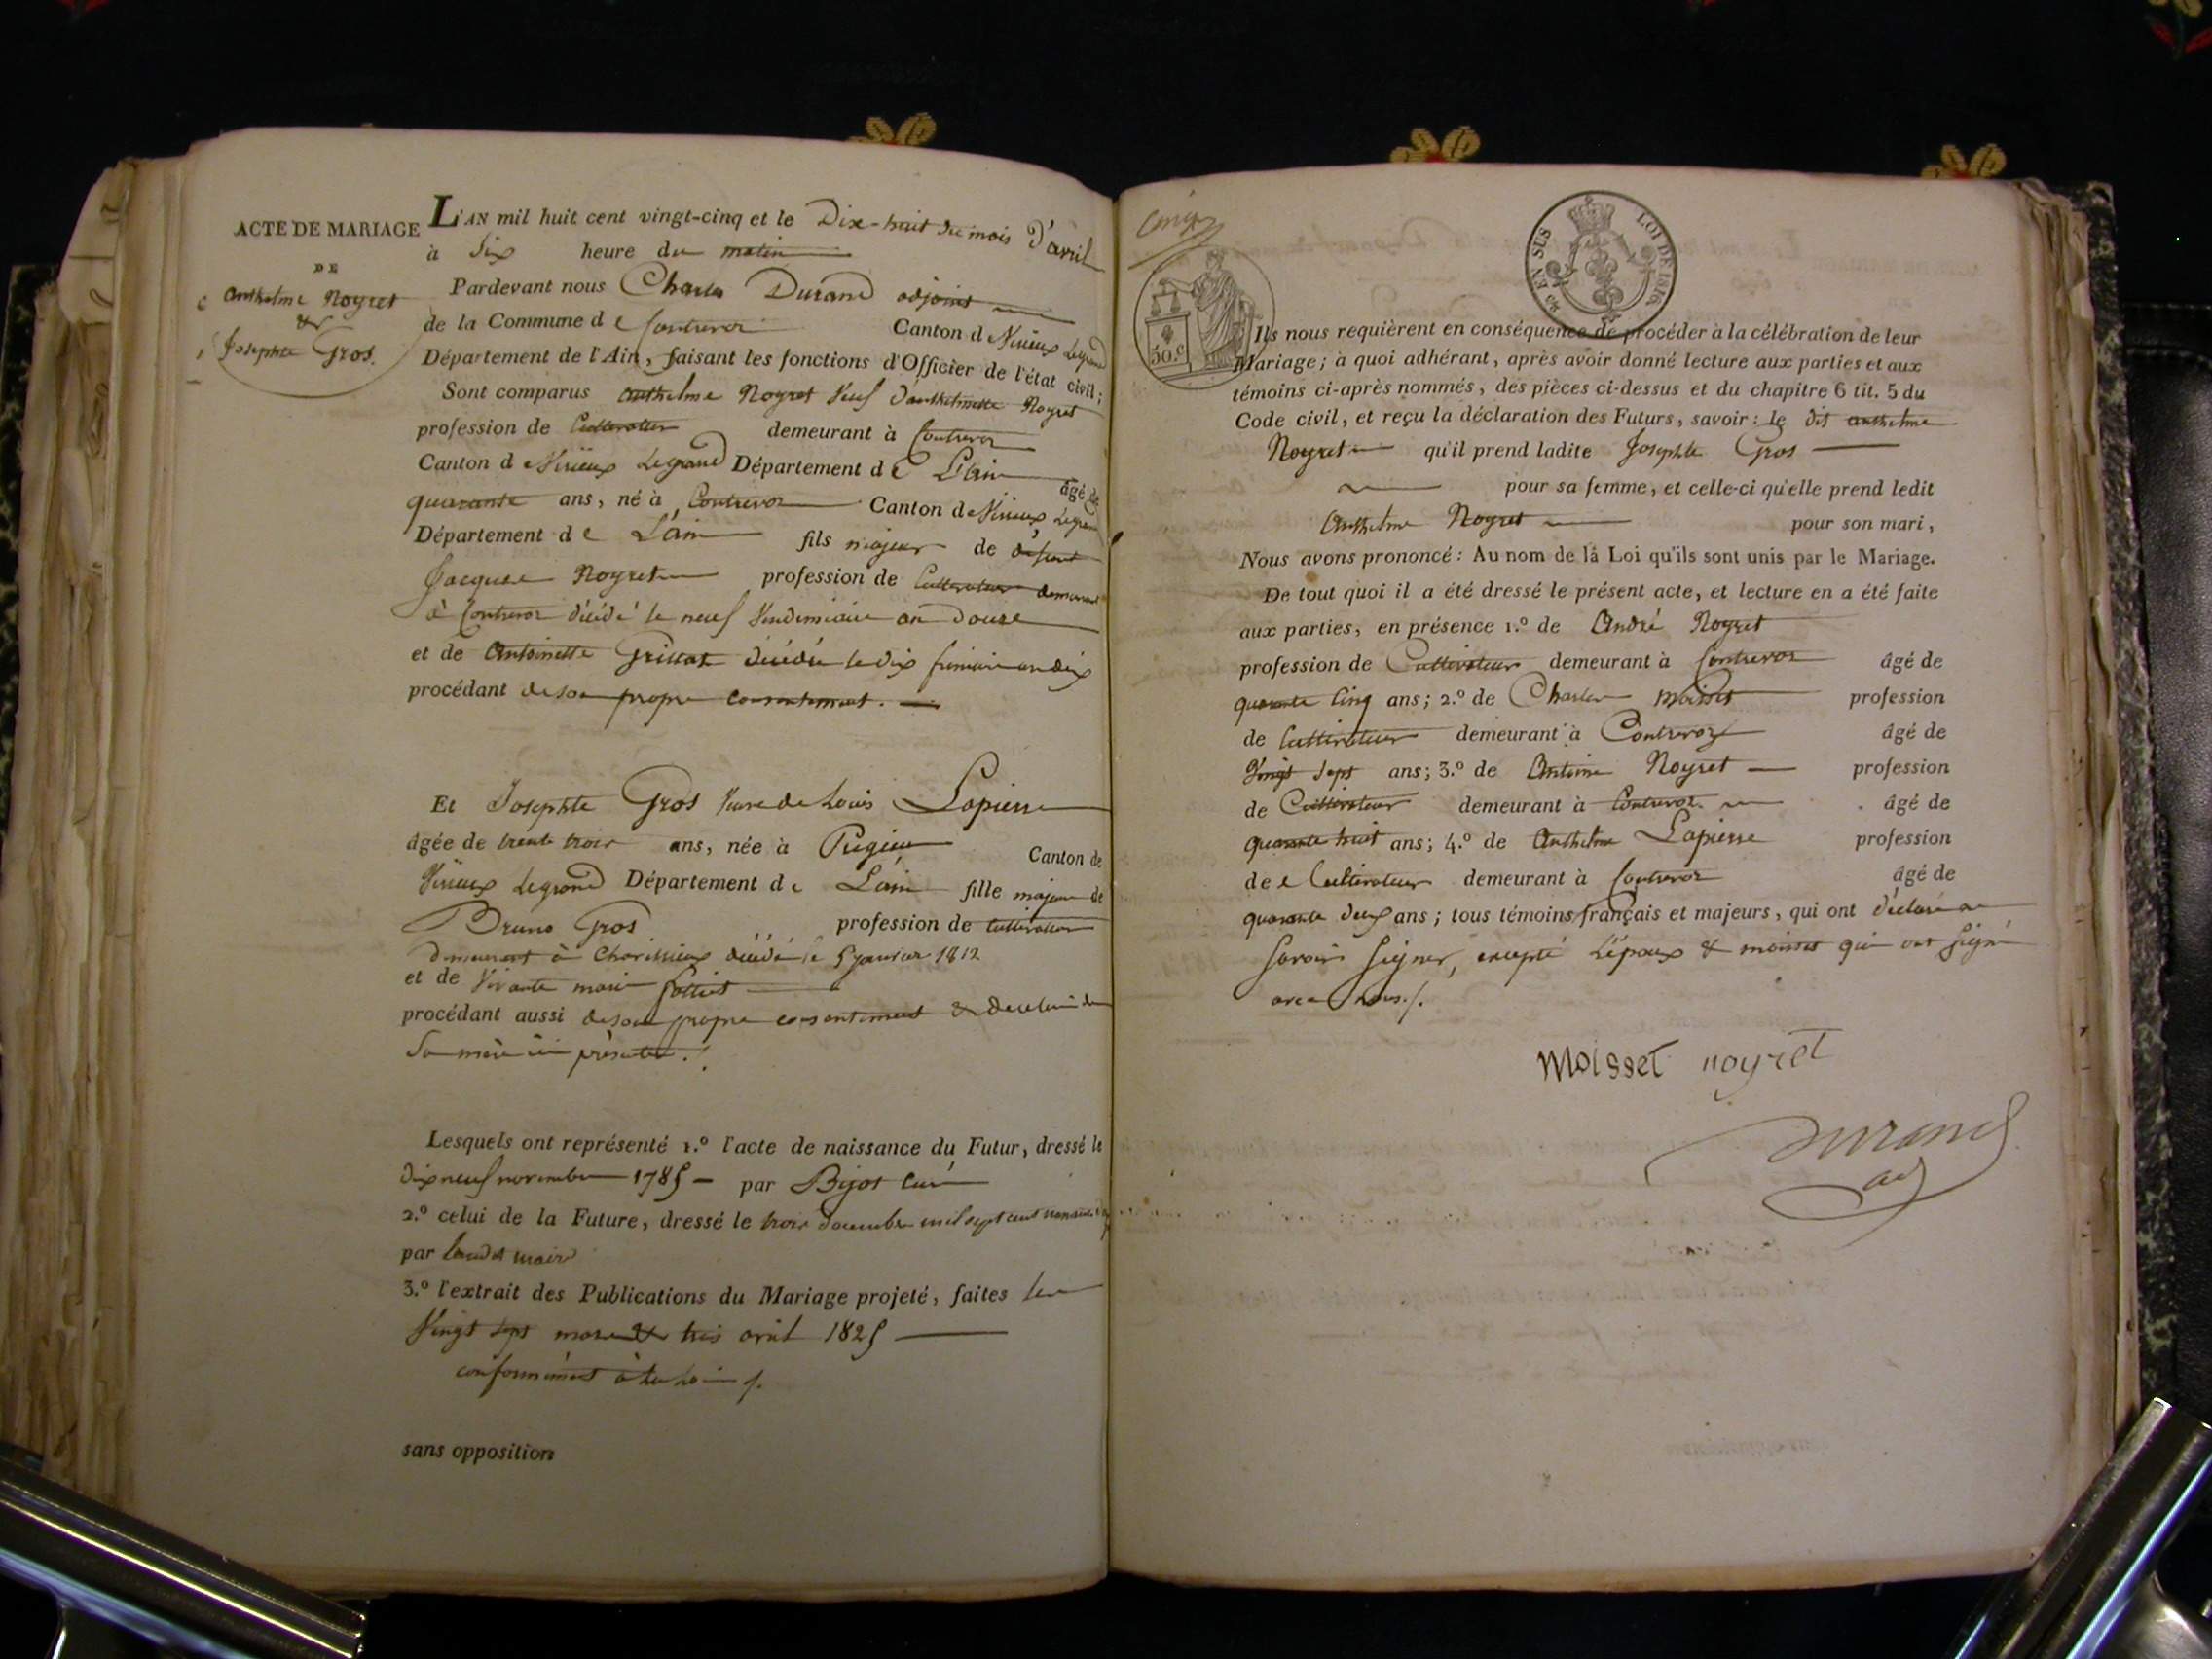 ACTE DE MARIAGE
DE
anthelme Noyret
&
Josephte Gros.
L'AN mil huit cent vingt-cinq et le Dix-huit du mois d'avril
à Six heure du matin
Pardevant nous Charles Durand adjoint
de la Commune de Contrevoz Canton de Virieux Legrand
Département de l'Ain, faisant les fonctions d'Officier de l'état civil;
Sont comparus anthelme Noyret Veuf d'anthelmette Noyret
profession de Cultivateur demeurant à Contrevoz
Canton de Virieux Legrand Département de L'ain âgé de
quarante ans, né à Contrevoz Canton de Virieux Legrand
Département de L'ain fils majeur de defunt
Jacques Noyret profession de Cultivateur demeurant
à Contrevoz décédé le neuf Vendimiaire an douze
et de Antoinette Grillat décédée le dix frimaire an dix
procédant de son propre consentement.
Et Josephte Gros Veuve de Louis Lapierre
âgée de trente trois ans, née à Pugieu Canton de
Virieux Legrand Département de L'ain fille majeure de
Bruno Gros profession de cultivateur
Demeurant à décédé le 5 janvier 1812
et de Vivante marie
procédant aussi de son propre consentement & de celui de
Sa mère ici présente.
Lesquels ont représenté 1.º l'acte de naissance du Futur, dressé le
dix neuf novembre 1785 par Bijot Curé
2.º celui de la Future, dressé le trois décembre mil sept cent
par maire
3.º l'extrait des Publications du Mariage projeté, faites les
Vingt sept mars & trois avril 1825
conformément à la Loi
sans opposition
50.c
EN SUS
LOI DE 1816
Ils nous requièrent en conséquence de procéder à la célébration de leur
Mariage; à quoi adhérant, après avoir donné lecture aux parties et aux
témoins ci-après nommés, des pièces ci-dessus et du chapitre 6 tit. 5 du
Code civil, et reçu la déclaration des Futurs, savoir: le dit anthelme
Noyret qu'il prend ladite Josephte Gros
pour sa femme, et celle-ci qu'elle prend ledit
Anthelme Noyret pour son mari,
Nous avons prononcé: Au nom de la Loi qu'ils sont unis par le Mariage.
De tout quoi il a été dressé le présent acte, et lecture en a été faite
aux parties, en présence 1.º de André Noyret
profession de Cultivateur demeurant à Contrevoz âgé de
quarante Cinq ans; 2.º de Charles Moisset profession
de Cultivateur demeurant à Contrevoz âgé de
Vingt Sept ans; 3.º de Antoine Noyret profession
de Cultivateur demeurant à Contrevoz âgé de
quarante huit ans; 4.º de Anthelme Lapierre profession
de Cultivateur demeurant à Contrevoz âgé de
quarante deux ans; tous témoins français et majeurs, qui ont déclaré ne
Savoir Signer, excepté L'époux & moisset qui ont Signé
avec nous.
Moisset noyret
Durand
adj